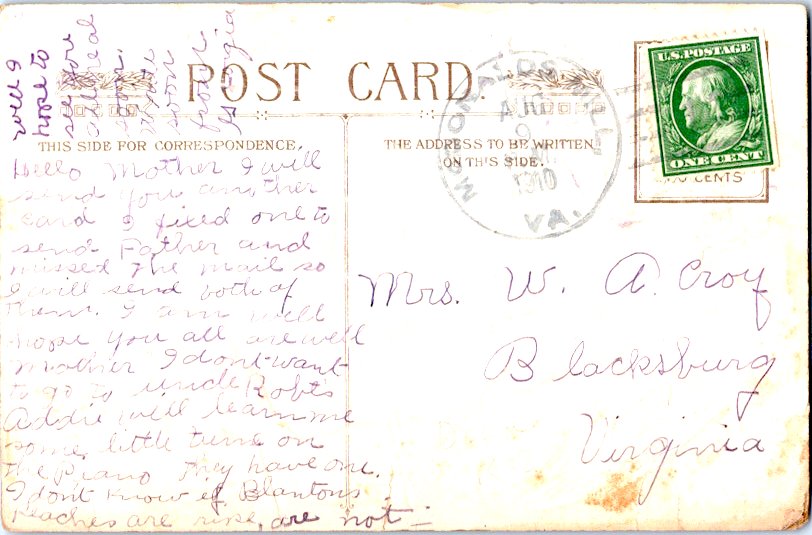 POST CARD.
THIS SIDE FOR CORRESPONDENCE.
THE ADDRESS TO BE WRITTEN
ON THIS SIDE.
U.S. POSTAGE
ONE CENT
McDONALDS MILL
9
1910
VA.
Hello Mother I will
send you another
card I fixed one to
send Father and
missed the mail so
I will send both of
them. I am well
hope you all are well
Mother I dont want
to go to uncle Robts
Addie will learn me
some little tune on
the piano they have one.
I dont know if Blantons
Peaches are ripe, are not
well I
hope to
see you
all real
soon.
write
soon
from
Georgia
Mrs. W. A. Croy
Blacksburg
Virginia